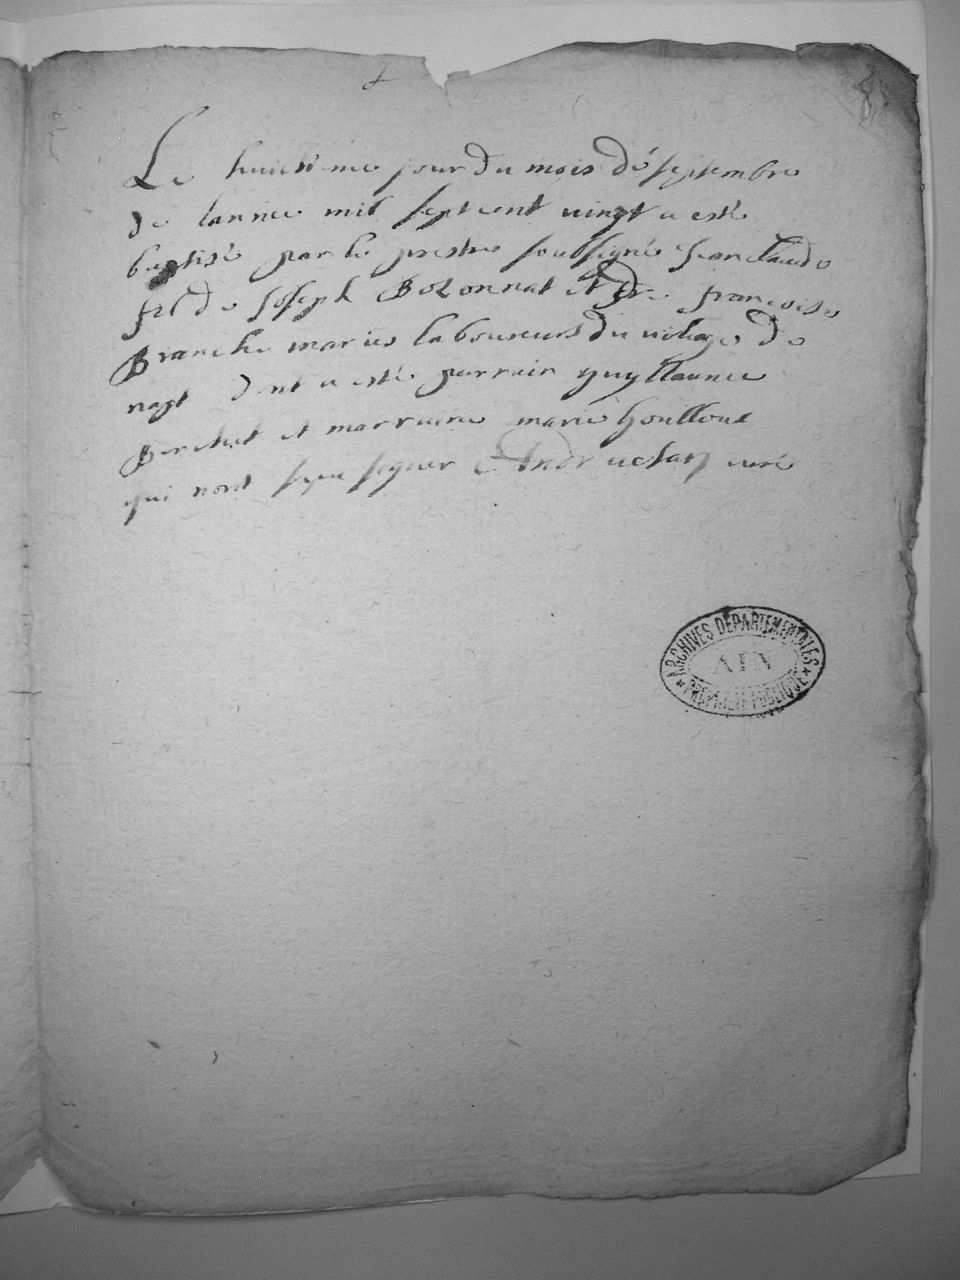 Le huictieme jour du mois de septembre
de lannee mil sept cent vingt a esté
baptisé par le prestre soubsigné Jean claude
fil de Joseph Bozonnat et de françoise
Branche maries laboureurs du vilage de
napt dont a esté parrain guyllaume
et marraine marie
qui nont sceu signer curé
ARCHIVES DEPARTEMENTALES
AIN
PROPRIETE PUBLIQUE